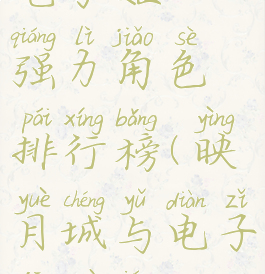 qiáng lì jiǎo sè
强力角色
pái xíng bǎng yìng
排行榜(映
yuè chéng yǔ diàn zǐ
月城与电子